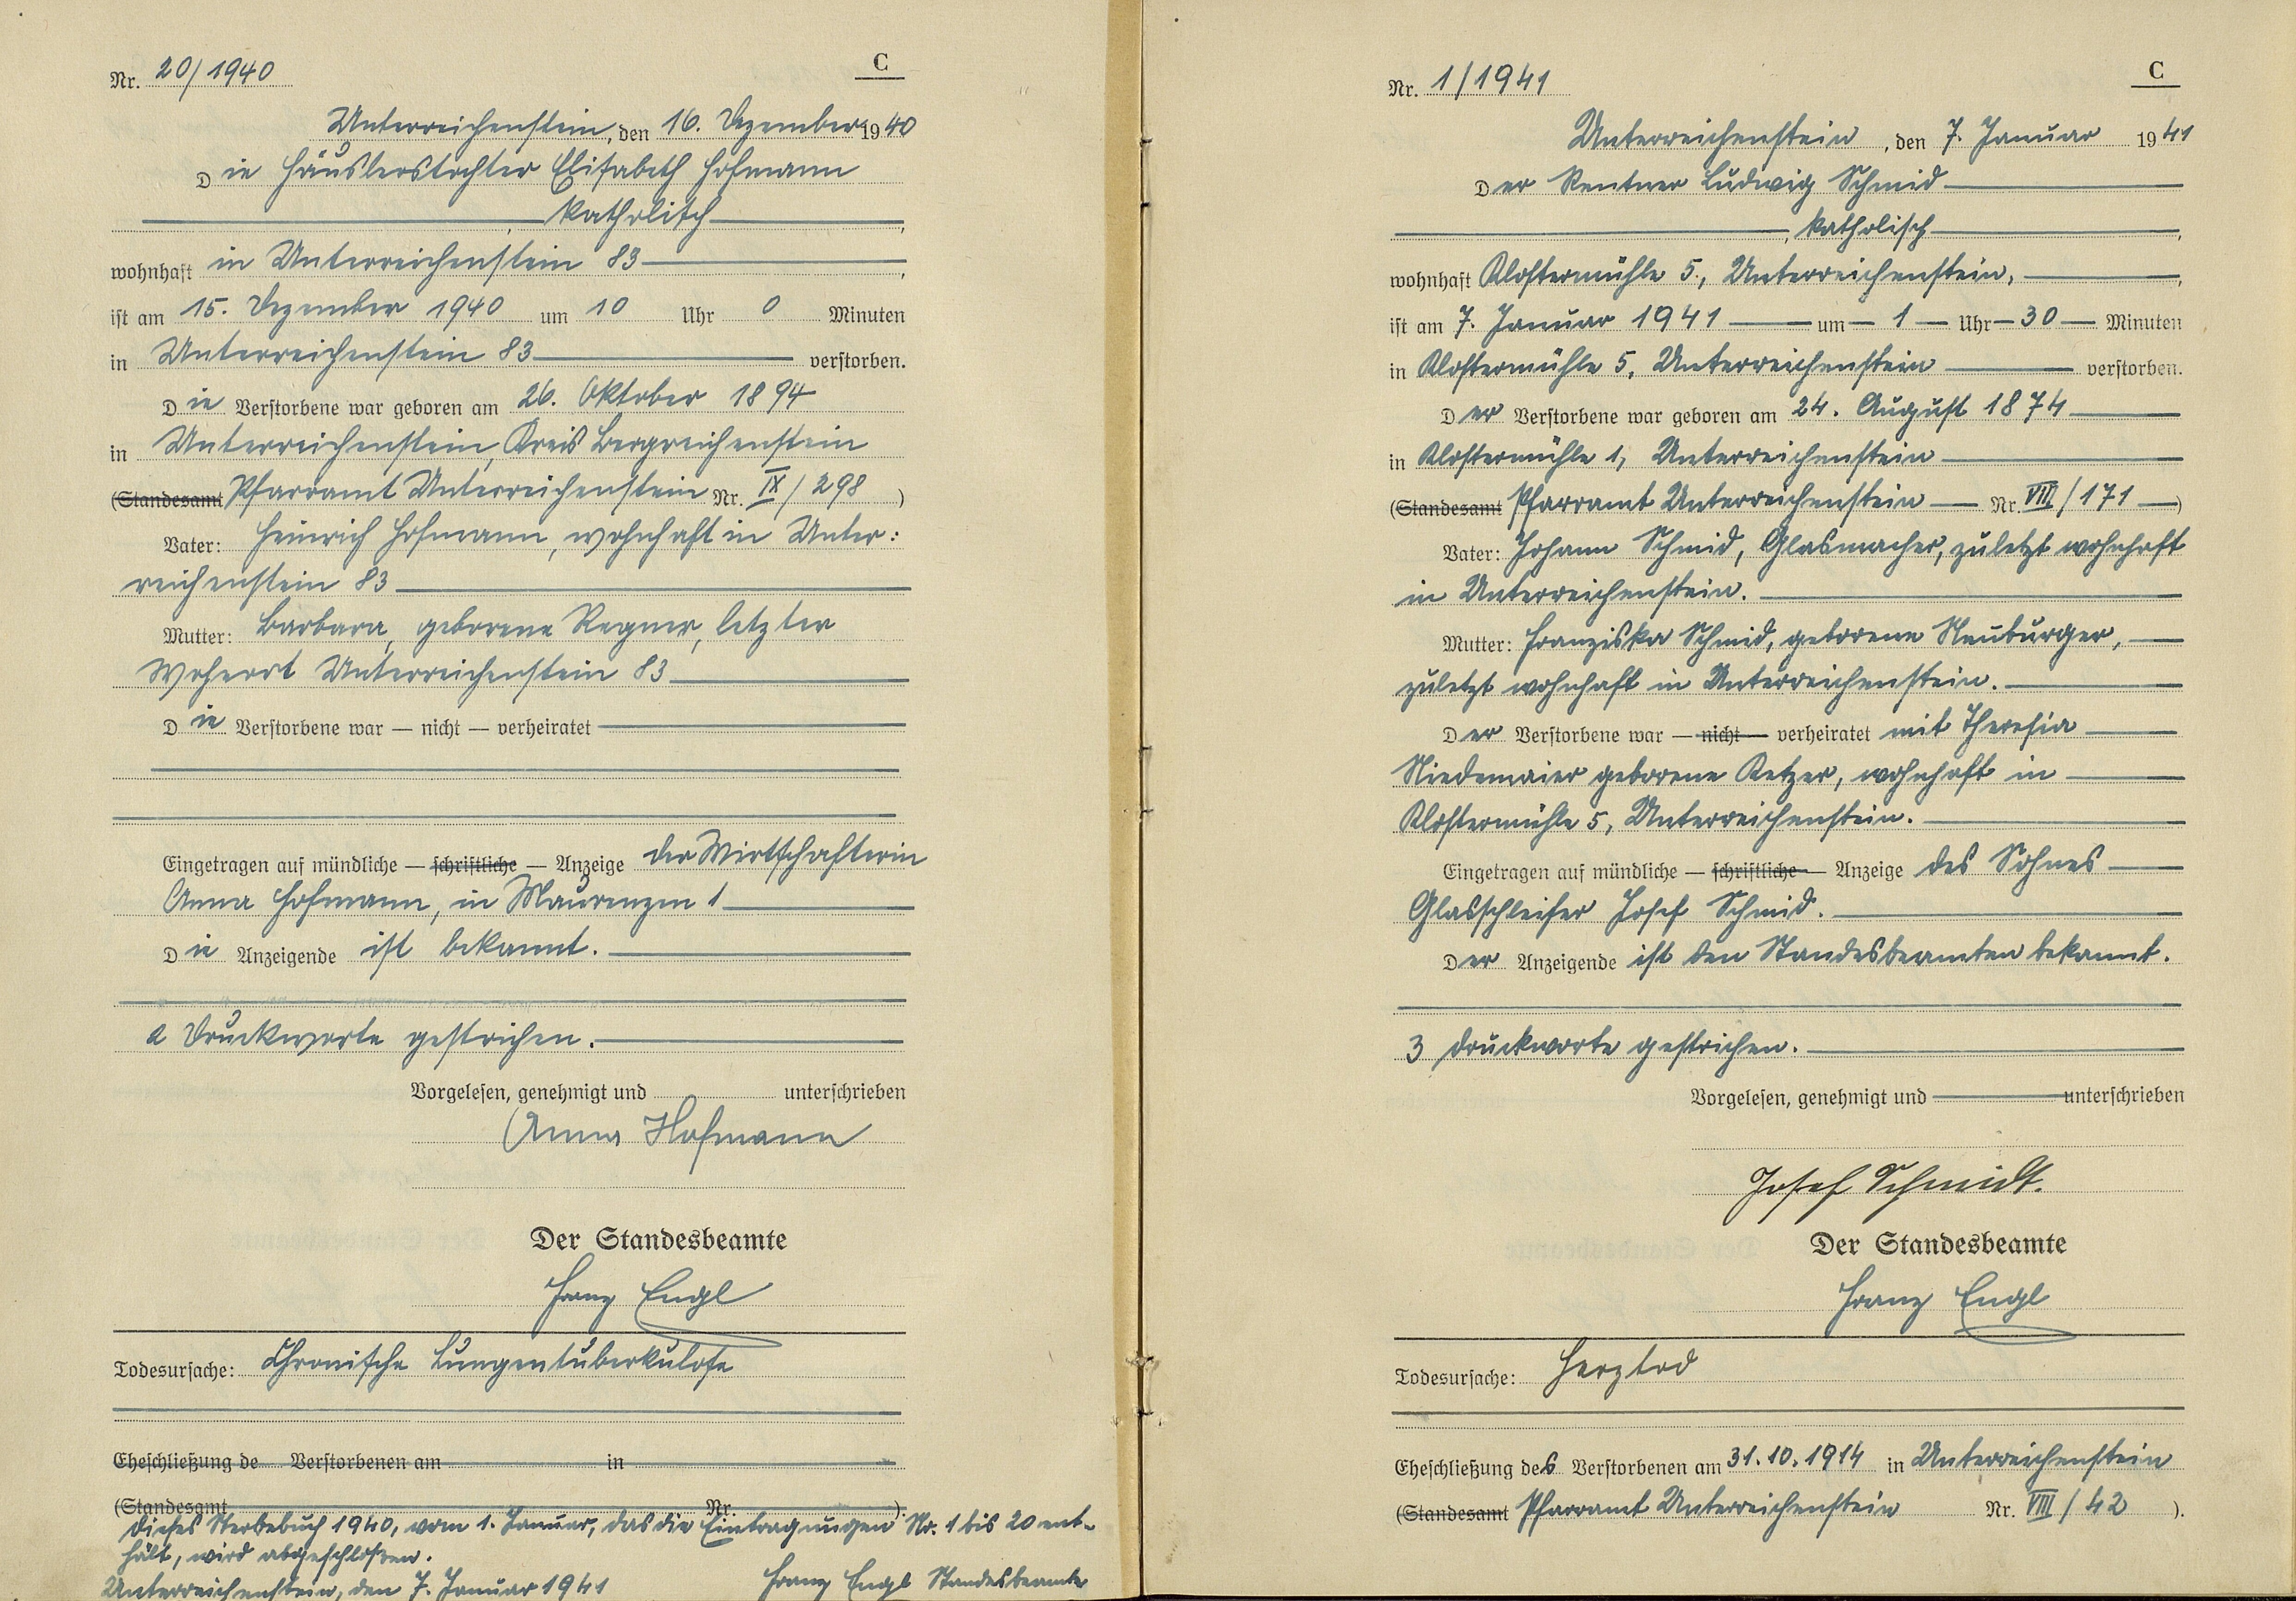 Nr. 20/1940
C
Unterreichenstein, den 16. Dezember 1940
Die Häuslerstochter Elisabeth Hofmann
katholisch,
wohnhaft in Unterreichenstein 83,
ist am 15. Dezember 1940 um 10 Uhr 0 Minuten
in Unterreichenstein 83 verstorben.
Die Verstorbene war geboren am 26. Oktober 1894
in Unterreichenstein, Kreis Bergreichenstein
(Standesamt Pfarramt Unterreichenstein Nr. IX/298)
Vater: Heinrich Hofmann, wohnhaft in Unter:
reichenstein 83
Mutter: Barbara, geborene Regner, letzter
Wohnort Unterreichenstein 83
Die Verstorbene war — nicht — verheiratet
Eingetragen auf mündliche — schriftliche — Anzeige der Wirtschafterin
Anna Hofmann, in Maurenzen 1
Die Anzeigende ist bekannt.
2 Druckworte gestrichen.
Vorgelesen, genehmigt und unterschrieben
Anna Hofmann
Der Standesbeamte
Franz Engl
Todesursache: Chronische Lungentuberkulose
Eheschließung de Verstorbenen am in
(Standesamt Nr. ).
Dieses Sterbebuch 1940, vom 1. Januar, das die Eintragungen Nr. 1 bis 20 ent-
hält, wird abgeschlossen.
Unterreichenstein, den 7. Januar 1941 Franz Engl Standesbeamte
Nr. 1/1941
C
Unterreichenstein, den 7. Januar 1941
Der Rentner Ludwig Schmid
, katholisch,
wohnhaft Klostermühle 5, Unterreichenstein,
ist am 7. Januar 1941 um 1 Uhr 30 Minuten
in Klostermühle 5, Unterreichenstein verstorben.
Der Verstorbene war geboren am 24. August 1874
in Klostermühle 1, Unterreichenstein
(Standesamt Pfarramt Unterreichenstein Nr. VIII/171)
Vater: Johann Schmid, Glasmacher, zuletzt wohnhaft
in Unterreichenstein.
Mutter: Franziska Schmid, geborene Neuburger,
zuletzt wohnhaft in Unterreichenstein.
Der Verstorbene war — nicht — verheiratet mit Theresia
Niedermaier geborene Ketzer, wohnhaft in
Klostermühle 5, Unterreichenstein.
Eingetragen auf mündliche — schriftliche — Anzeige des Sohnes
Glasschleifer Josef Schmid.
Der Anzeigende ist den Standesbeamten bekannt.
3 Druckworte gestrichen.
Vorgelesen, genehmigt und unterschrieben
Josef Schmidt.
Der Standesbeamte
Franz Engl
Todesursache: Herztod
Eheschließung des Verstorbenen am 31.10.1914 in Unterreichenstein
(Standesamt Pfarramt Unterreichenstein Nr. VIII/42).